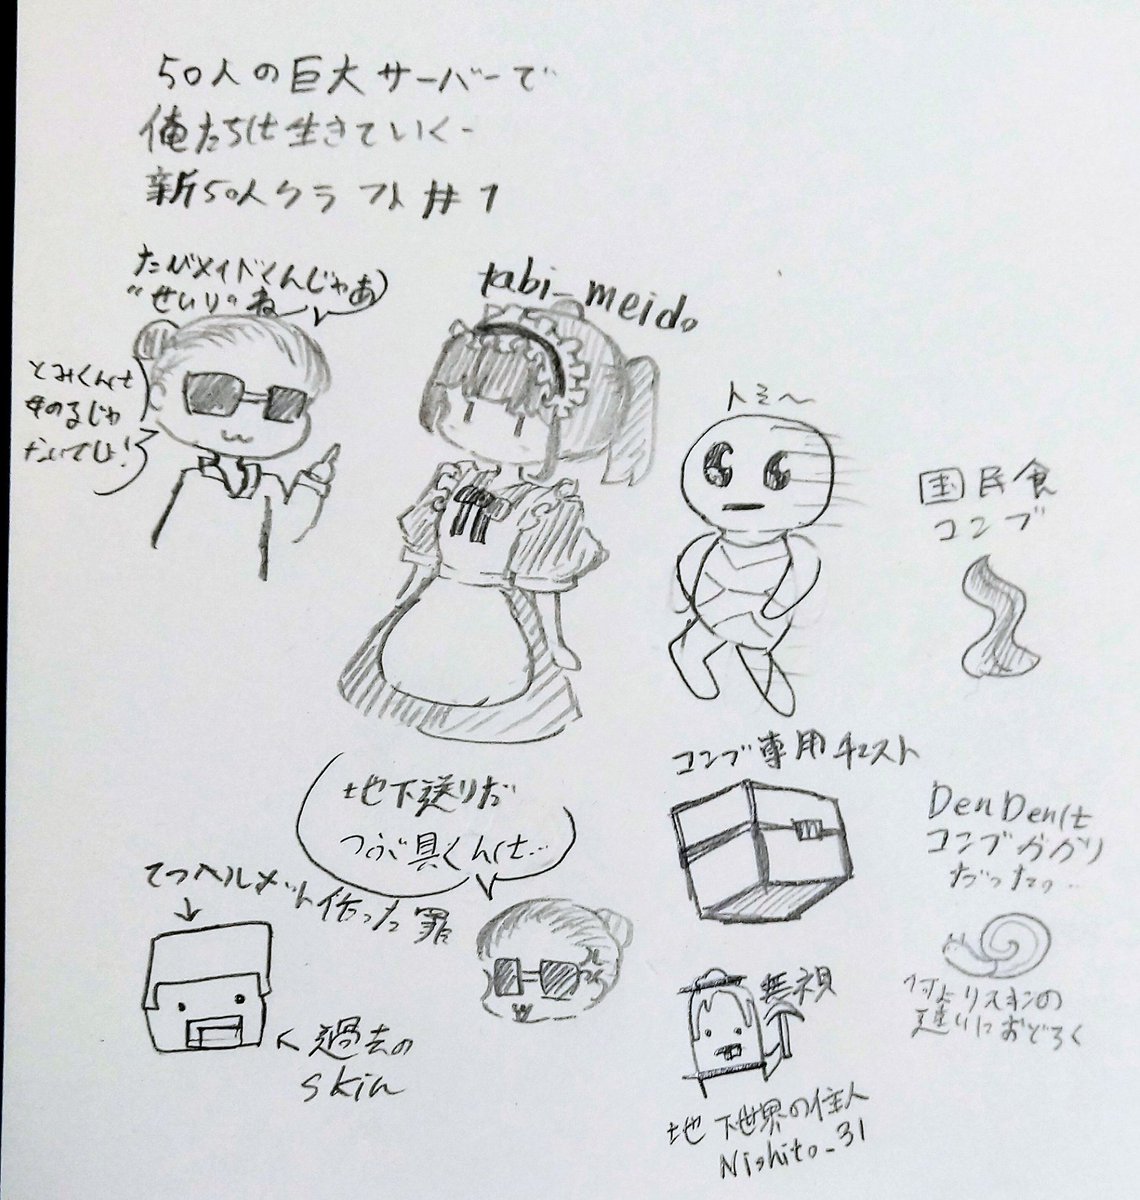 50人の巨大サーバーで
俺たちは生きていく-
新50人クラフト#1
たびメイドくんじゃあ
"せいり"ね
tabi_meido
とみくんは
ないでしょ!
トミ〜
国民食
コンブ
コンブ専用チェスト
DenDenは
コンブガカリ
だったの…
地下送りだ
つらが具くんは…
てつヘルメット作った罪
過去の
skin
無視
何よりスキンの
違いにおどろく
地下世界の住人
Nishito_31